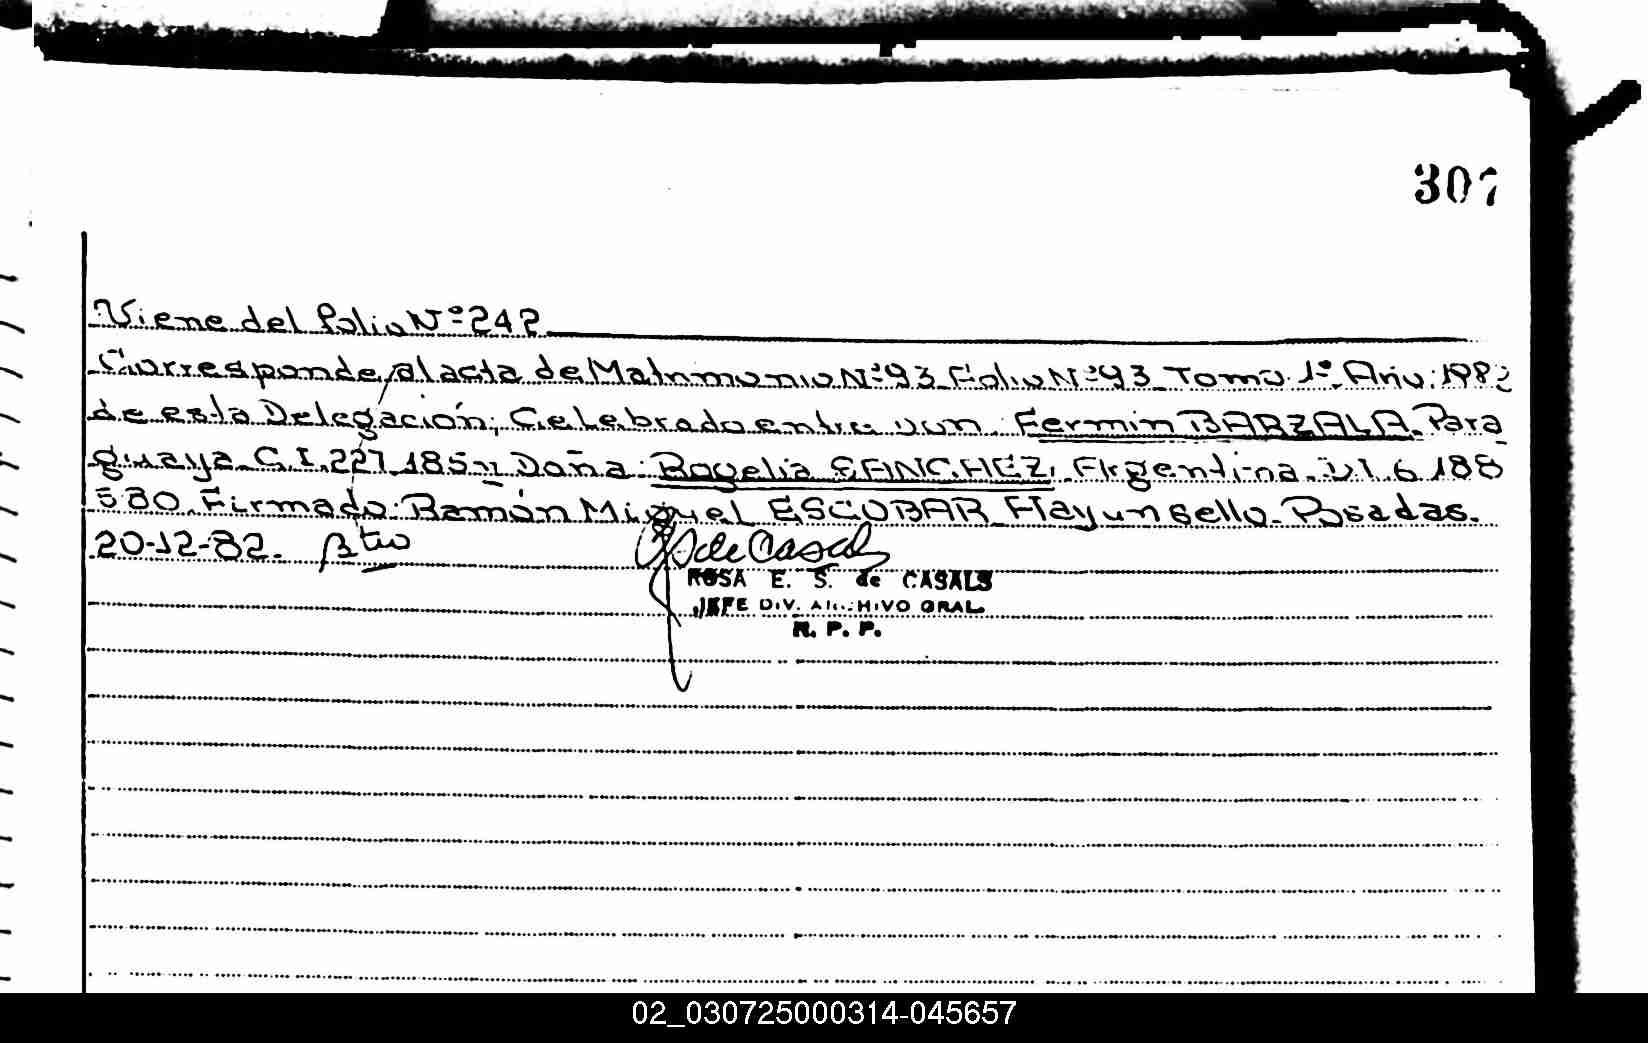 307
Viene del folio Nº 242
Corresponde al acta de Matrimonio Nº 93 Folio Nº 93 Tomo 1º Año: 1982
de esta Delegación; Celebrado entre don: Fermin BARZALA. Para
guaya C.I. 227.185 y Doña: Rogelia SANCHEZ, Argentina. D.I. 6.188
580. Firmado: Ramón Miguel ESCOBAR Hay un sello. Posadas.
20-12-82.
de Casals
ROSA E. S. de CASALS
JEFE DIV. ARCHIVO GRAL.
R. P. P.
02_030725000314-045657